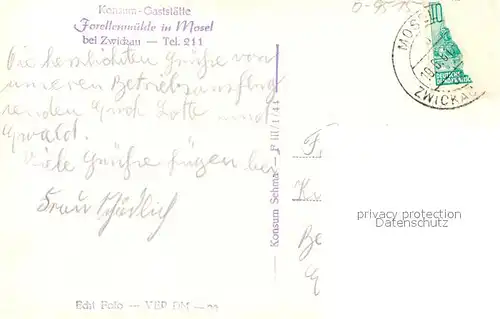 Konsum-Gaststätte
Forellenmühle in Mosel
bei Zwickau — Tel. 211
Die herzlichsten Grüße von
unseren Betriebsausflug
senden Euch Lotte und
Ewald.
Viele Grüße fügen bei
Frau
Konsum Sehma — P III/1/11
Echt Foto — VEB DM —
MOSEL
ZWICKAU
10
DEUTSCHE
privacy protection
watermark